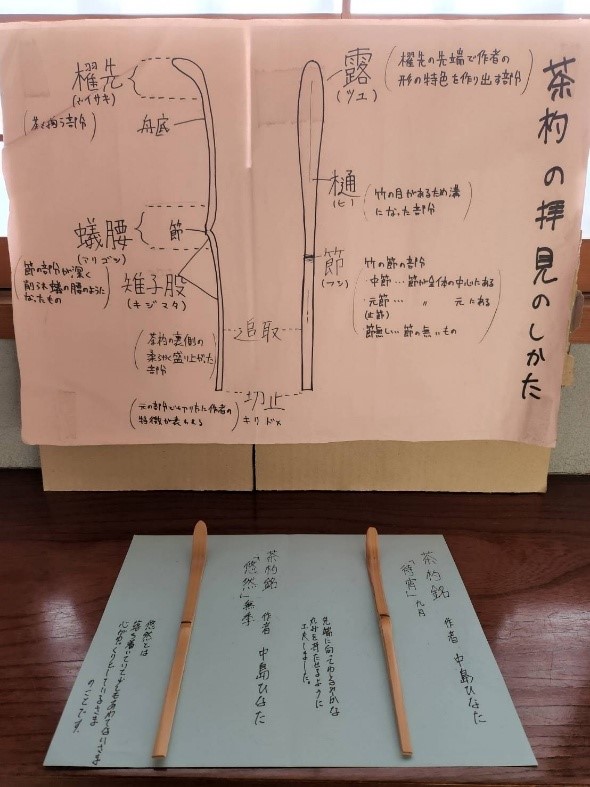 茶杓の拝見のしかた
露
(ツユ)
櫂先の先端で作者の
形の特色を作り出す部分
樋
(ヒ)
竹の目があるため溝
になった部分
節
(フシ)
竹の節の部分
・中節…節が全体の中心にある
・元節…〃元にある
(止節)
節無し…節の無いもの
櫂先
(カイサキ)
茶を掬う部分
舟底
蟻腰
(アリゴシ)
節
節の部分が深く
削られ蟻の腰のように
なったもの
雉子股
(キジマタ)
茶杓の裏側の
柔らかく盛り上がった
部分
追取
切止
キリドメ
元の部分で切り方に作者の
特徴が表れる
茶杓銘
「待宵」九月
作者 中島ひなた
先端に向ってわずかな
丸みを持たせるように
工夫しました。
茶杓銘
「悠然」無季
作者 中島ひなた
悠然とは
落ち着いていて
心がゆっくりとしているさま
のことです。